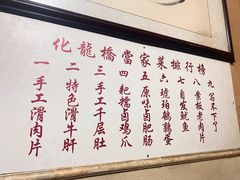 化龍橋當家菜排行榜
一 手工滑肉片
二 特色滑牛肝
三 手工千层肚
四 粑糯卤鸡爪
五 原味卤肥肠
六 琥珀鹌鹑蛋
七 自发鱿鱼
八 案板老肉片
九 写不下了